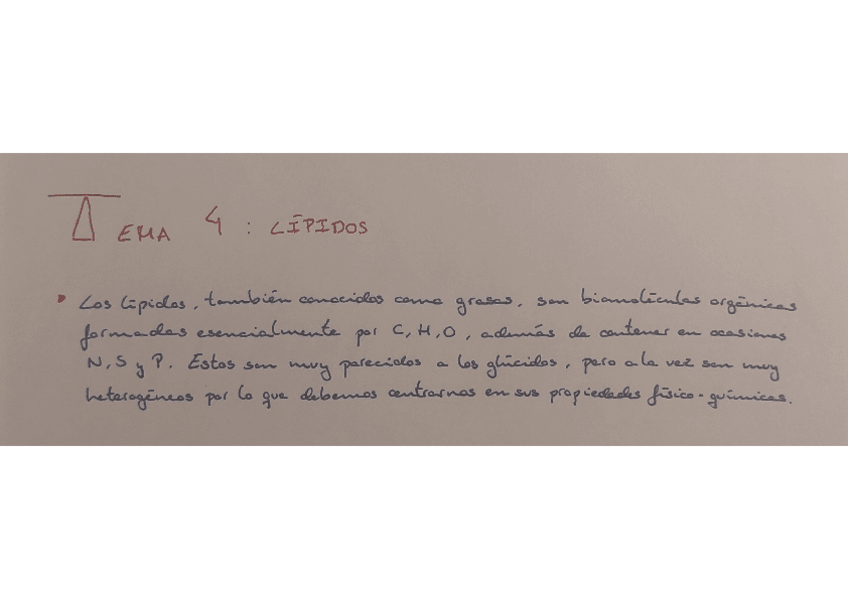 TEMA 4 : LÍPIDOS
Los lípidos, también conocidos como grasas, son biomoléculas orgánicas
formadas esencialmente por C, H, O, además de contener en ocasiones
N, S y P. Estos son muy parecidos a los glúcidos, pero a la vez son muy
heterogéneos por lo que debemos centrarnos en sus propiedades físico-químicas.